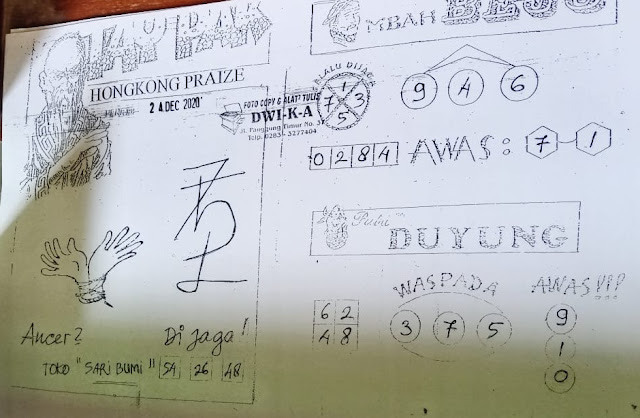 HONGKONG PRAIZE
24 DEC 2020
Ancer?
Di jaga!
TOKO "SARI BUMI" 54 26 48
MBAH BEJO
SELALU DIJAGA
1
7 3
5
FOTO COPY & ALAT TULIS
DWI-K-A
Jl. Panggung Timur No. 37
Telp. 0283-3277404
9 4 6
0 2 8 4 AWAS: 7-1
Putri
DUYUNG
WASPADA
6 2
4 8
3 7 5
AWAS!!!
9
1
0